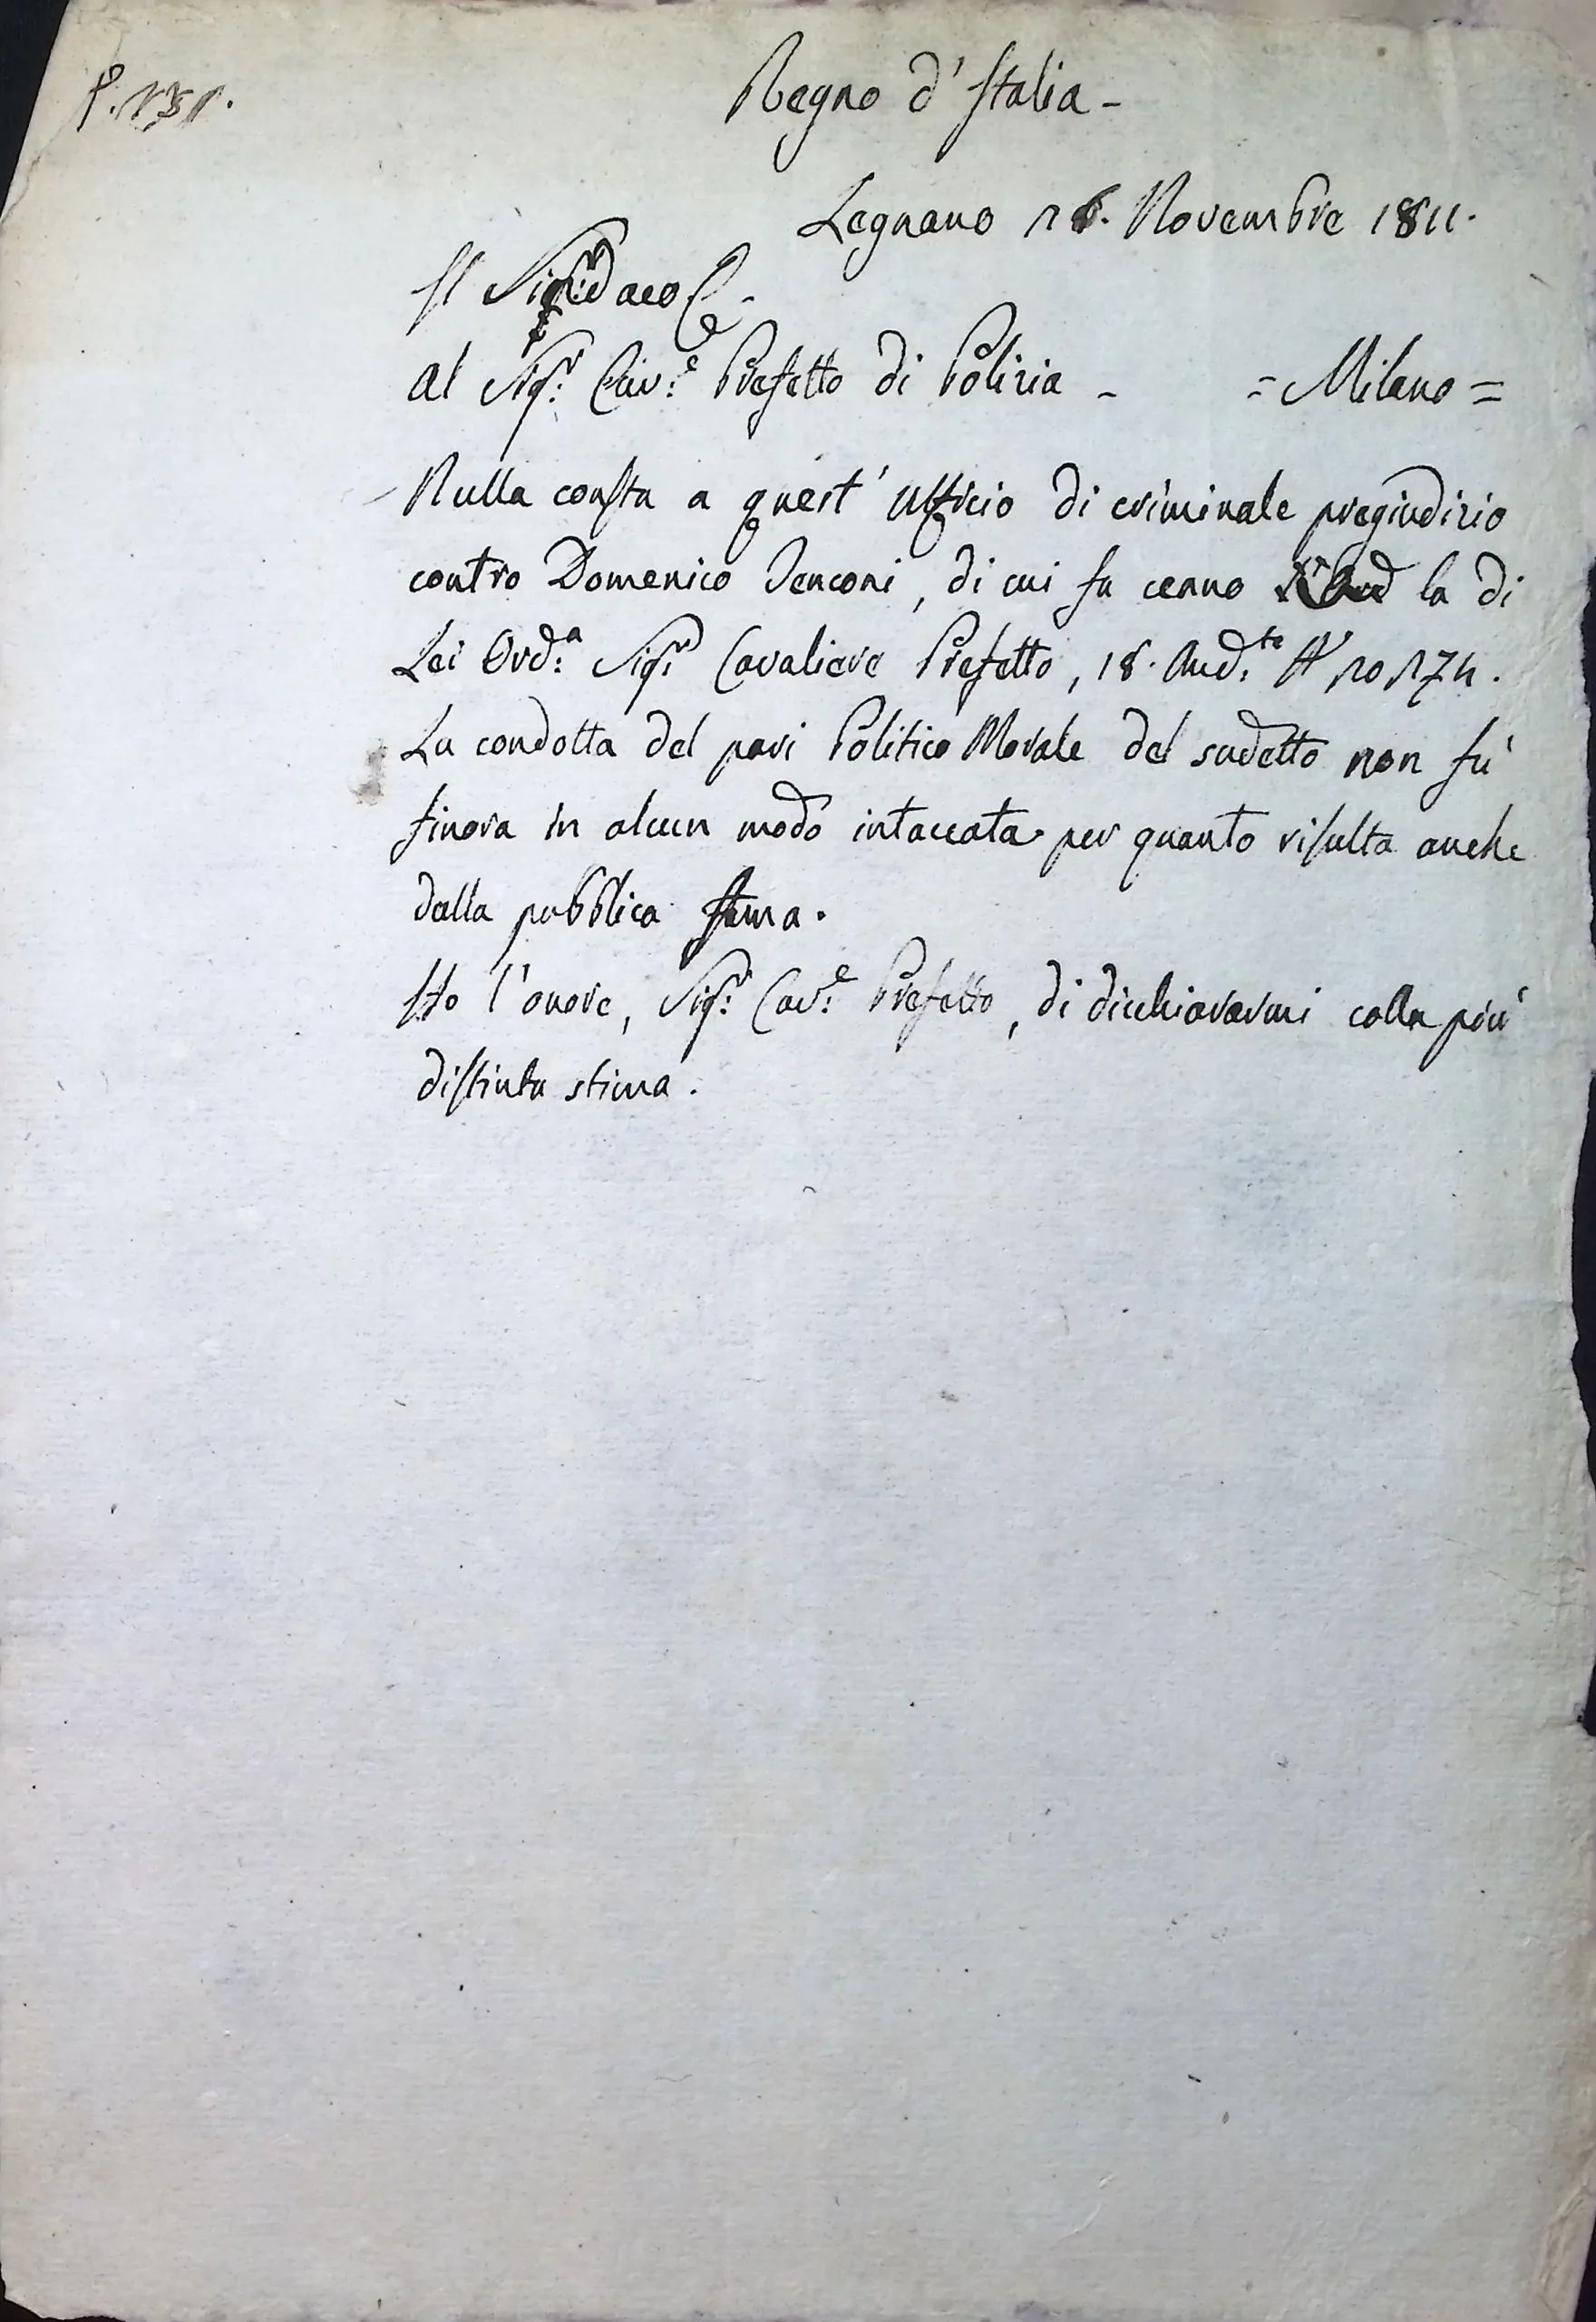 Regno d'Italia -
Legnano 26. Novembre 1811.
Il Sindaco
Al Sig.r Cav.e Prefetto di Polizia - = Milano =
Nulla consta a quest' Ufficio di criminale pregiudizio
contro Domenico Venconi, di cui fa cenno la di
Lei Ord.a Sig.r Cavaliere Prefetto, 18. And.te N
La condotta del pari Politico Morale del sudetto non fú
finora in alcun modo intaccata per quanto risulta anche
dalla pubblica fama.
Ho l'onore, Sig.r Cav.e Prefetto, di dicchiararmi colla più
distinta stima.